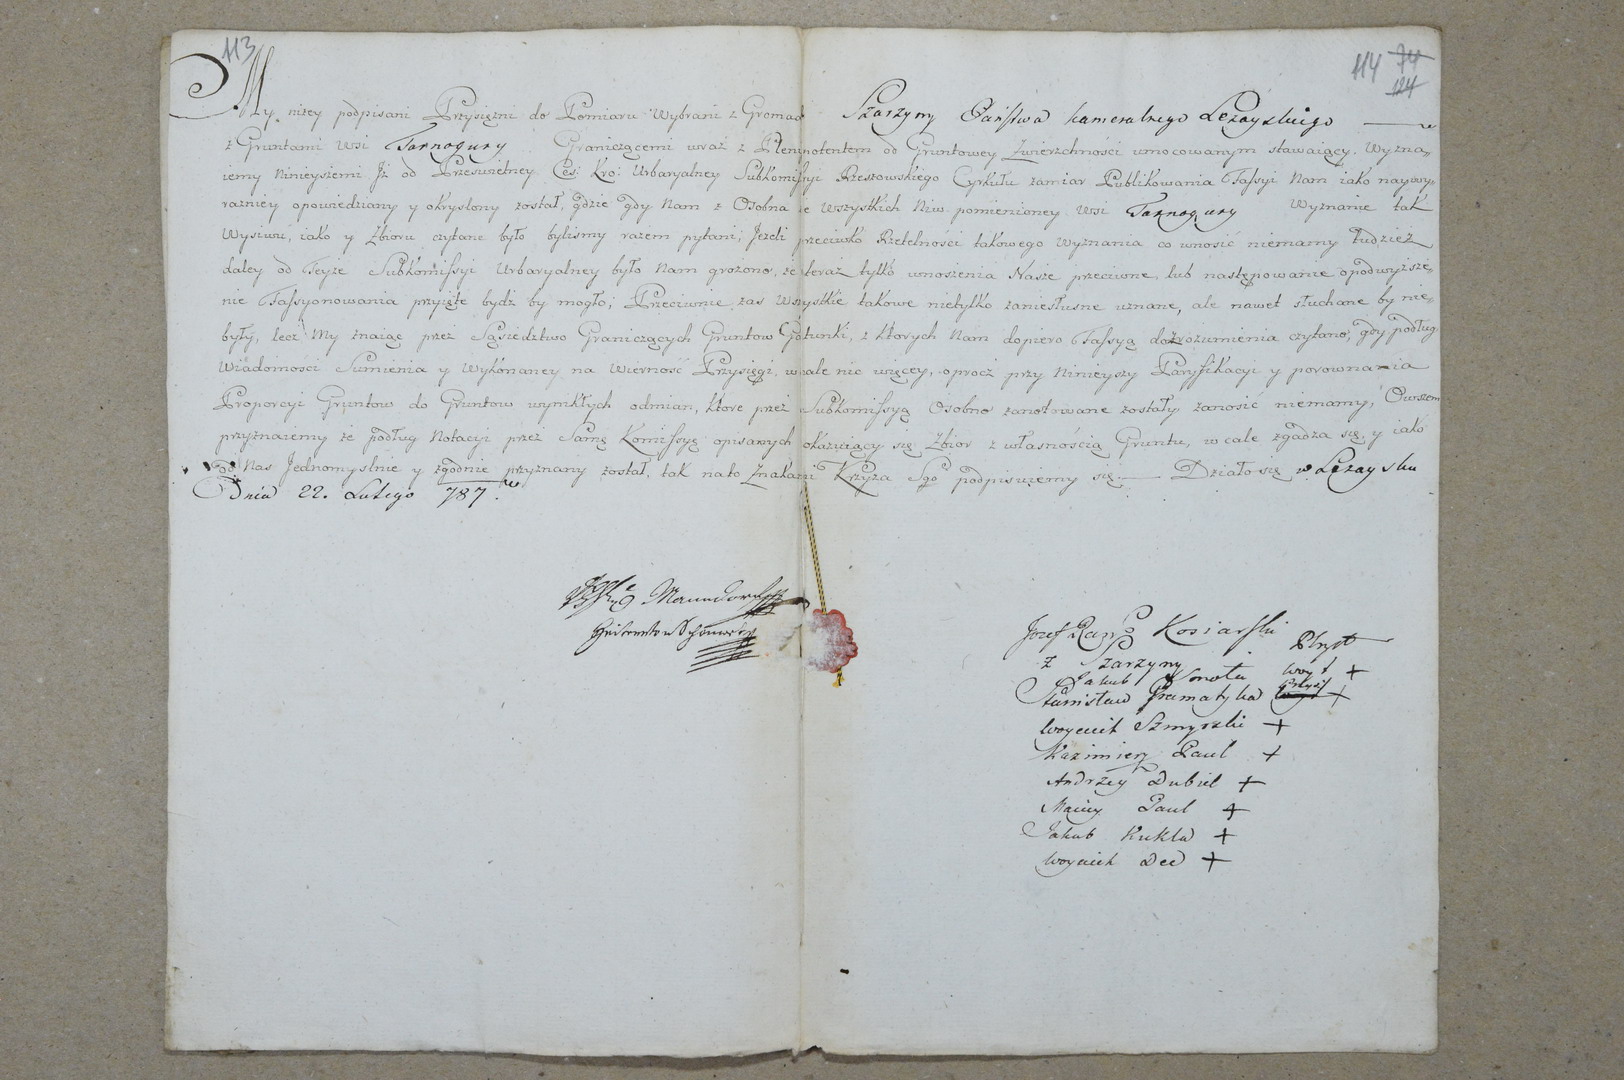 113
114 74
124
My niżey podpisani Przysiężni do Pomiaru Wybrani z Gromad Szarzyny Państwa kameralnego Leżayskiego
z Gruntami wsi Tarnogury Graniczącemi wraz z Plenipotentem od Gruntowey Zwierzchności umocowanym stawaiący. Wyzna„
iemy ninieyszemi Jż od Prześwietney Ces: Kro: Urbaryalney Subkomissyi Rzeszowskiego Cyrkułu zamiar Publikowania Fassyi Nam iako naywy„
raźniey opowiedziany y okryslony został, gdzie gdy Nam z Osobna ze wszystkich Niw pomienioney wsi Tarnogury Wyznanie tak
Wysiwu, iako y Zbioru czytane było byliśmy razem pytani; Jeżeli przeciwko Rzetelności takowego Wyznania co wnosić niemamy tudzież
daley od Teyże Subkomissyi Urbaryalney było Nam grożono, że teraz tylko wnoszenia Nasze przeciwne, lub następowanie o podwyższe„
nie Fassyonowania przyięte bydź by mogło; Przeciwnie zas wszystkie takowe nietylko zaniesłuszne uznane, ale nawet słuchane by nie„
były, lecz My znaiąc przez Sąsiedztwo Graniczących Gruntow Gatunki, z ktorych Nam dopiero Fassyą dozrozumienia czytano, gdy podług
Wiadomości Sumienia y Wykonaney na Wierność Przysięgi, wcale nic więcey, oprocz przy Ninieyszy Paryfikacyi y porownania
Proporcyi Gruntow do Gruntow wynikłych odmian, ktore przez Subkomissyą Osobno zanotowane zostały zanosić niemamy; Owszem
przyznaiemy że podług Notacyi przez Samę Komissyę opisanych okazuiący się Zbior z własnością Gruntu, wcale zgadza się, y iako
od Nas Jednomyslnie y zgodnie przyznany został, tak nato Znakami Krzyża Sgo podpisuiemy się Działo się w Leżaysku
Dnia 22. Lutego 787.
Jozef Kosiarski
z Szarzyny
Jakub Smoła Woyt +
Stanisław Gramatyka Przysż +
Woyciech Szmyrski +
Kazimierz Paul +
Andrzey Dubiel +
Maciey Paul +
Jakub Kukla +
Woyciech Dec +